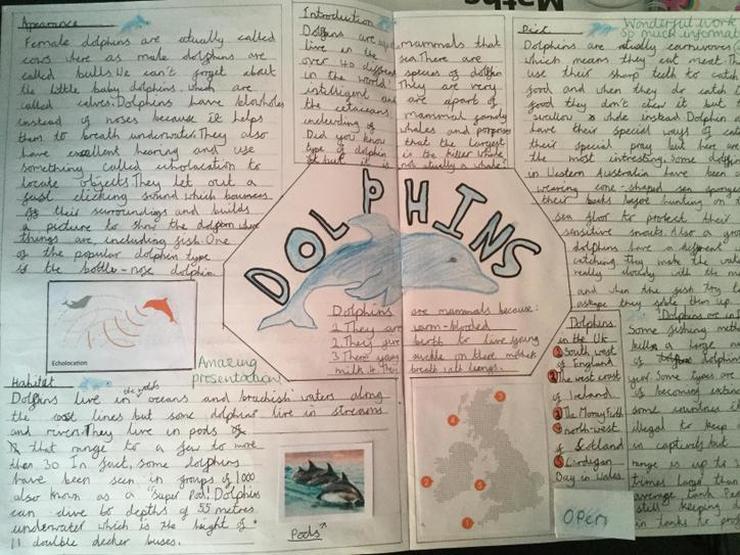 Maths
Appearance
Female dolphins are atually called
cows where as male dolphins are
called bulls. We can't forget about
the little baby dolphins which are
called calves. Dolphins have blowholes
instead of noses because it helps
them to breath underwater. They also
have excellent hearing and use
something called echolocation to
locate objects. They let out a
fast clicking sound which bounces
off their surroundings and builds
a picture to show the dolphin where
things are, including fish. One
of the popular dolphin type
is the bottle-nose dolphin
Echolocation
Amazing
presentation!
Habitat
Dolphins live in the worlds oceans and brackish waters along
the cost lines but some dolphins live in streams
and rivers. They live in pods
that range to a few to more
then 30 In fact, some dolphins
have been seen in groups of 1000
also known as a "Super Pod." Dolphins
can dive to depths of 55 metres
underwater which is the height of
11 doulble decker buses.
Pods
Introduction
Dolphins are mammals that
live in the sea. There are
over 40 different species of dolfin
in the world. They are very
intelligent and are apart of
the cetaceans mammal family
including of whales and porpoises
Did you know that the largest
type of dolphin is the killer whale
but it is not atually a whale!
DOLPHINS
Dolphins are mammals because:
1. They are warm-blooded
2. They give birth to live young
3. There young suckle on there mothers
milk 4. They breath with lungs.
Diet
Wonderful work
So much informat
Dolphins are atually carnivores
which means they eat meat. The
use their sharp teeth to catch
food and when they do catch
food they don't chew it but
swallow whole instead Dolphin a
have their special ways of cat
their special pray but here are
the most intresting. Some dolfin
in Western Australia have been
wearing cone-shaped sea sponges
their beaks before hunting on
sea floor to protect their
sensitive snouts. Also a gro
dolphins have a different w
catching. They make the wat
really cloudy with the m
and when the fish try to
escape they goble them up.
Dolphins
in the UK
1 South west
of England
2 The west coast
of Ireland
3 The Moray Firth
4 north-west
of Scotland
5 Cardigan
Bay in Wales
Dolphins are in
Some fishing meth
kill a large n
dolphins
year. Some types are
of becoming extinc
some countries i
illegal to keep
in captivity but
range is up to
times larger than
average tank
still keeping d
in tanks to
OPEN
4
3
2
5
1